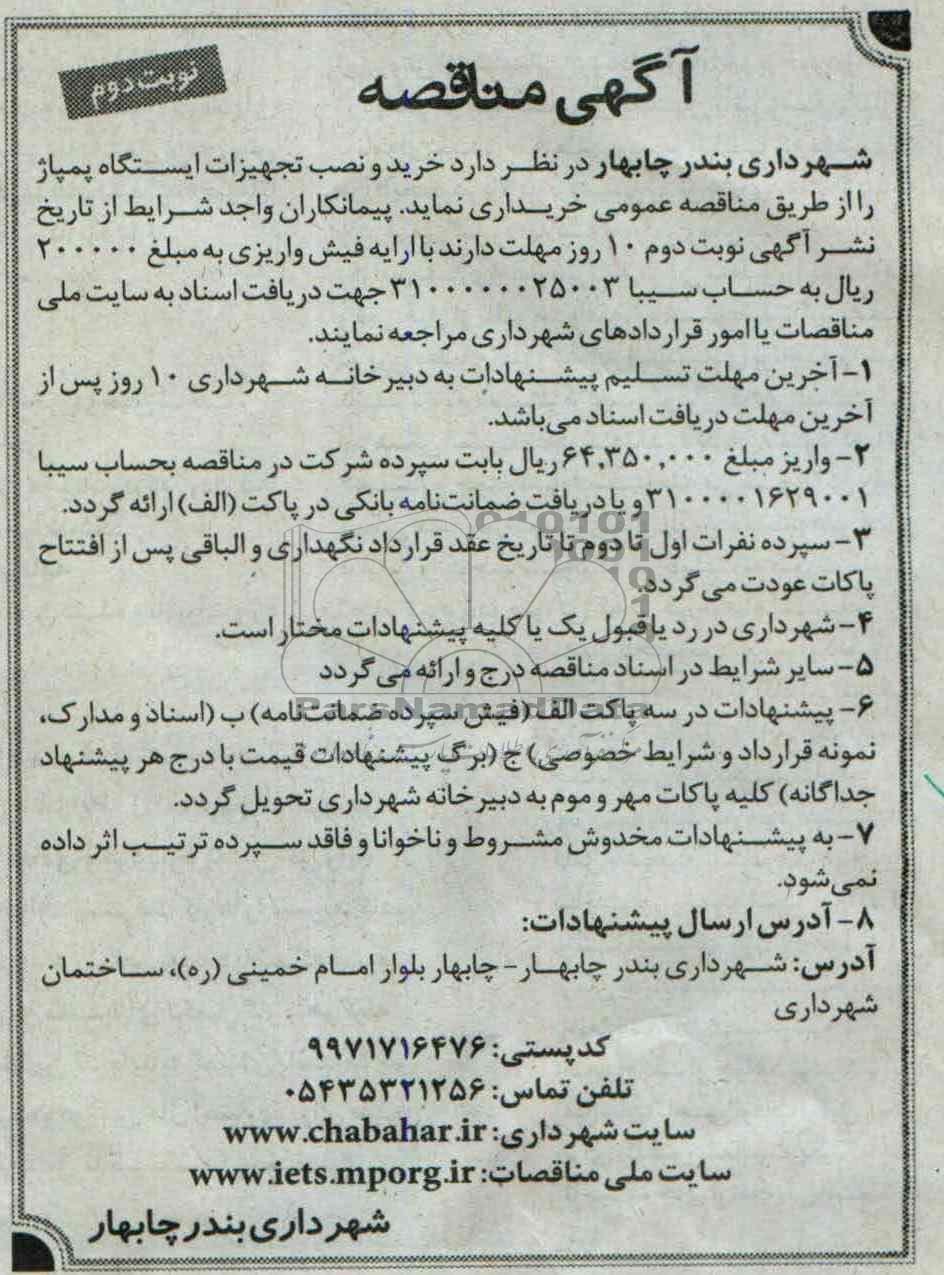 آگهی مناقصه
نوبت دوم
شهرداری بندر چابهار در نظر دارد خرید و نصب تجهیزات ایستگاه پمپاژ
را از طریق مناقصه عمومی خریداری نماید. پیمانکاران واجد شرایط از تاریخ
نشر آگهی نوبت دوم ۱۰ روز مهلت دارند با ارایه فیش واریزی به مبلغ ۲۰۰۰۰۰
ریال به حساب سیبا ۳۱۰۰۰۰۰۰۲۵۰۰۳ جهت دریافت اسناد به سایت ملی
مناقصات یا امور قراردادهای شهرداری مراجعه نمایند.
۱- آخرین مهلت تسلیم پیشنهادات به دبیرخانه شهرداری ۱۰ روز پس از
آخرین مهلت دریافت اسناد می‌باشد.
۲- واریز مبلغ ۶۴,۳۵۰,۰۰۰ ریال بابت سپرده شرکت در مناقصه بحساب سیبا
۳۱۰۰۰۰۱۶۲۹۰۰۱ و یا دریافت ضمانت‌نامه بانکی در پاکت (الف) ارائه گردد.
۳- سپرده نفرات اول تا دوم تا تاریخ عقد قرارداد نگهداری و الباقی پس از افتتاح
پاکات عودت می گردد.
۴- شهرداری در رد یا قبول یک یا کلیه پیشنهادات مختار است.
۵- سایر شرایط در اسناد مناقصه درج و ارائه می گردد
۶- پیشنهادات در سه پاکت الف (فیش سپرده ضمانت‌نامه) ب (اسناد و مدارک،
نمونه قرارداد و شرایط خصوصی) ج (برگ پیشنهادات قیمت با درج هر پیشنهاد
جداگانه) کلیه پاکات مهر و موم به دبیرخانه شهرداری تحویل گردد.
۷- به پیشنهادات مخدوش مشروط و ناخوانا و فاقد سپرده ترتیب اثر داده
نمی‌شود.
۸- آدرس ارسال پیشنهادات:
آدرس: شهرداری بندر چابهار- چابهار بلوار امام خمینی (ره)، ساختمان
شهرداری
کدپستی: ۹۹۷۱۷۱۶۴۷۶
تلفن تماس: ۰۵۴۳۵۳۲۱۲۵۶
سایت شهرداری: www.chabahar.ir
سایت ملی مناقصات: www.iets.mporg.ir
شهرداری بندر چابهار
ParsNamadData